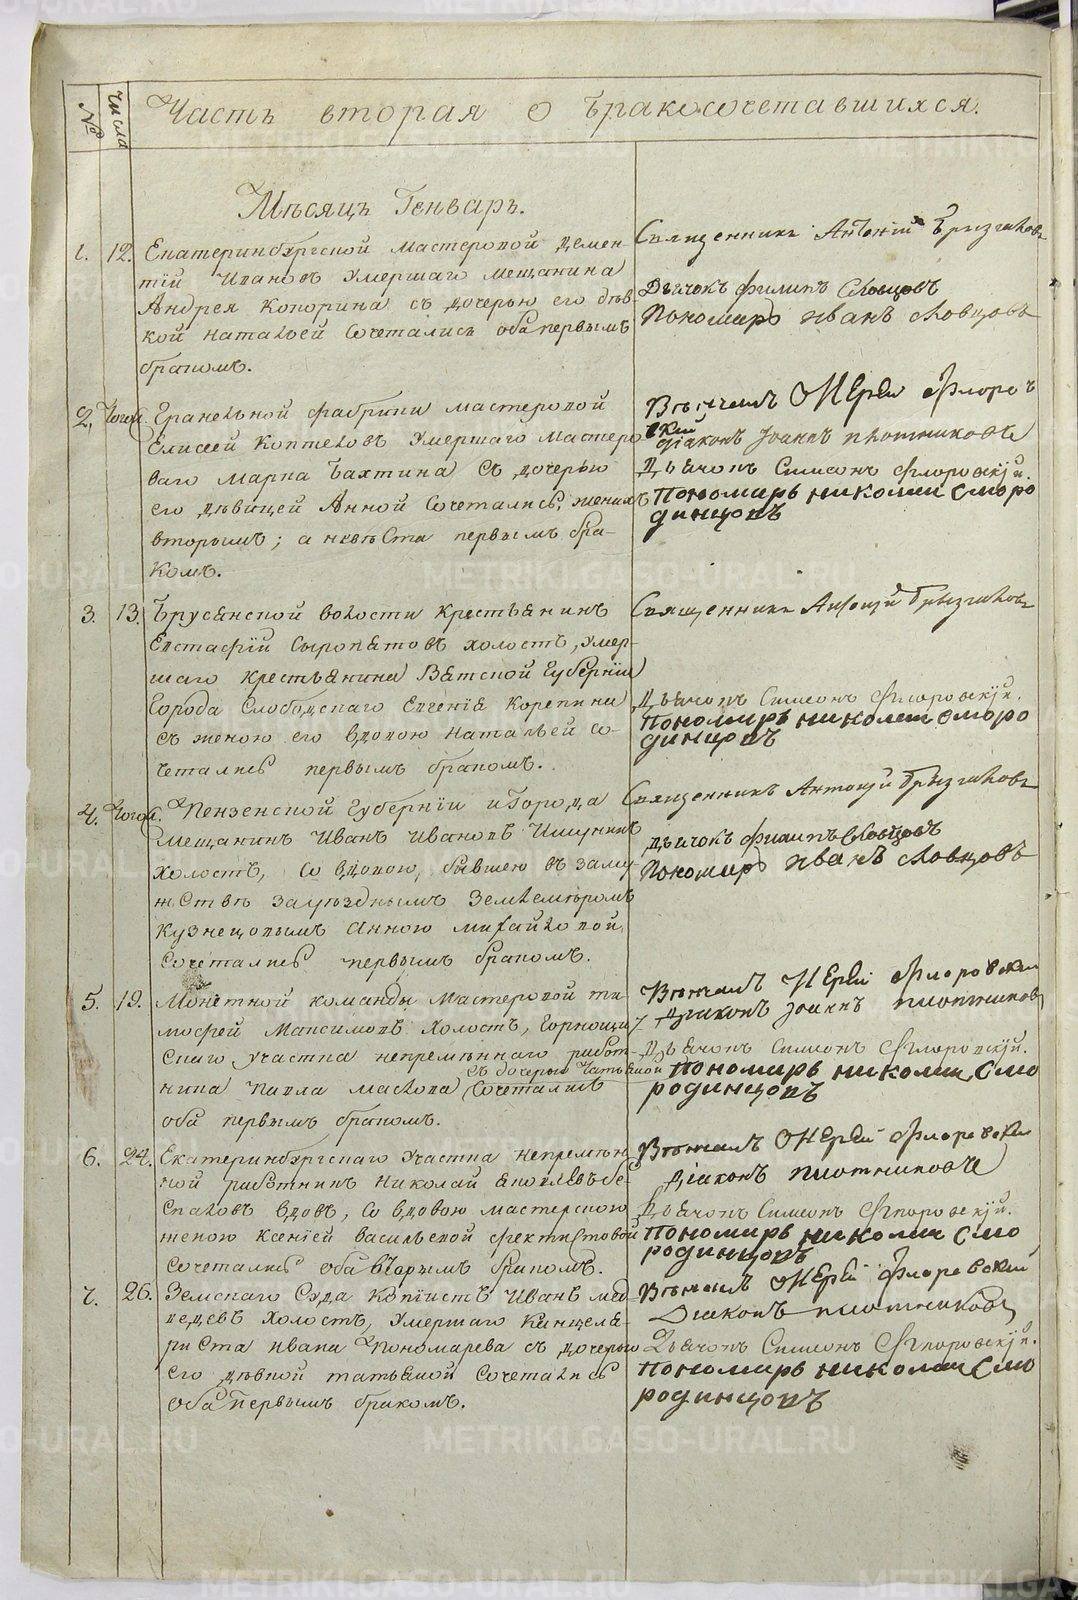 № Числа Часть вторая о бракосочетавшихся.
Мѣсяцъ Генварь.
1. 12. Екатеринбургской мастеровой Демен-
тій Ивановъ умершаго мещанина
Андрея Копорина съ дочерью его дѣв-
кой Натальей сочетались оба первымъ
бракомъ.
Священникъ Антоній Брызгаловъ
Дьячокъ Филипъ Словцовъ
Пономарь Иванъ Словцовъ
2. Тогож. Гранильной фабрики мастеровой
Елисей Коптеловъ умершаго мастеро
ваго Марка Бахтина съ дочерью
его дѣвицей Анной сочетались, женихъ
вторымъ; а невѣста первымъ бра-
комъ.
Вѣнчалъ Иерей Флоров
ский
діаконъ Іоаннъ Плотниковъ
Дьячокъ Симеонъ Флоровскій.
Пономарь Николай Сморо
динцовъ
3. 13. Брусянской волости крестьянинъ
Евстафій Сыропятовъ холостъ, умер-
шаго крестьянина Вятской Губерніи
Города Слободскаго Евгенія Корепина
съ женою его вдовою Натальей со-
четались первымъ бракомъ.
Священникъ Антоній Брызгаловъ
Дьячокъ Симеонъ Флоровскій.
Пономарь Николай Сморо
динцовъ
4. Тогож. Пензенской Губерніи и Города
мещанинъ Иванъ Ивановъ
холостъ, со вдовою, бывшею въ заму-
жствѣ за уѣзднымъ землемѣромъ
Кузнецовымъ Анною Михайловой,
сочетались первымъ бракомъ.
Священникъ Антоній Брызгаловъ
Дьячокъ Филипъ Словцовъ
Пономарь Иванъ Словцовъ
5. 19. Монетной команды мастеровой Ти-
мофей Максимовъ холостъ, Горнощи
скаго участка непремѣннаго работ-
съ дочерью Татьяной
ника Павла Маслова сочетались
оба первымъ бракомъ.
Вѣнчалъ Иерей Флоровский
Діаконъ Іоаннъ Плотниковъ
Дьячокъ Симеонъ Флоровскій.
Пономарь Николай Смо
родинцовъ
6. 24. Екатеринбургскаго участка непремѣн
ной работникъ Николай Яковлевъ Бе-
спаловъ вдовъ, со вдовою мастерскою
женою Ксеніей Васильевой Фектистовой
сочетались оба вторымъ бракомъ.
Вѣнчалъ Иерей Флоровский
Діаконъ Плотниковъ
Дьячокъ Симеонъ Флоровскій.
Пономарь Николай Смо
родинцовъ
7. 26. Земскаго Суда копіистъ Иванъ Мед-
ведевъ холостъ, умершаго канцеля-
риста Ивана Пономарева съ дочерью
его дѣвкой Татьяной сочетались
оба первымъ бракомъ.
Вѣнчалъ Иерей Флоровский
Діаконъ Плотниковъ
Дьячокъ Симеонъ Флоровскій.
Пономарь Николай Смо
родинцовъ
METRIKI.GASO-URAL.RU